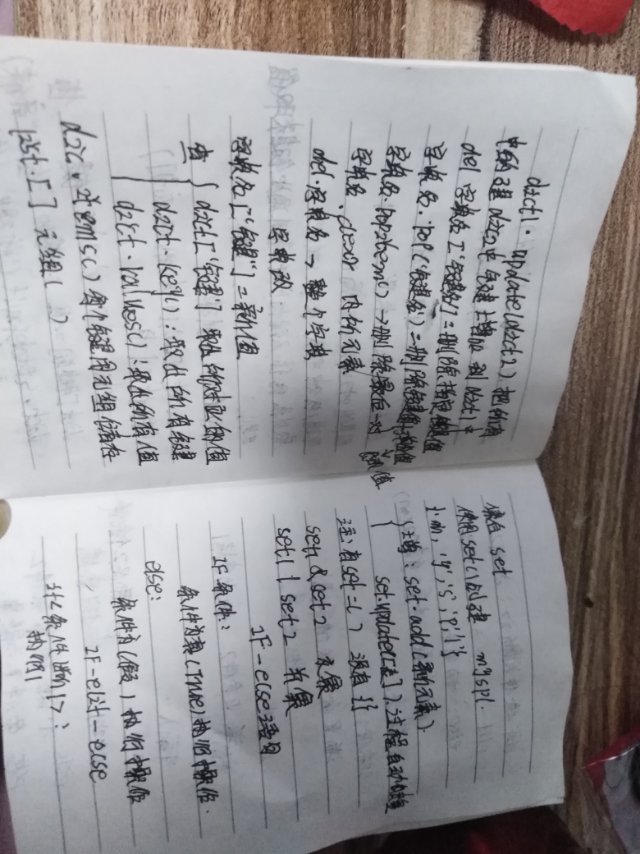 dict1.update(dict2) 把所有
中的键 dict2 中键增加到 dict1中
del 字典名["键名"] = 删除指定的值
字典名.pop("键名") = 删除键值
字典名.popitem() → 删除最后一对
键值
字典名.clear 内所元素
del.字典名 → 整个字典
字典改
字典名["键"] = 新值
查 { dict["键"] 取出所对应的值
dict.key(): 取出所有键
dict.values(): 取出所有值
dic.items() 每个键用元组储存
list.[] 元组()
集合 set
使用set()创建 mysql.
{'m','y','s','q','l'}
增: set.add(新元素)
set.update([ ])
注:若set=() 没有{}
set1 & set2 交集
set1 | set2 并集
IF-else语句
IF 条件:
条件为真(True)执行操作.
else:
条件为(假) 执行操作
IF-elif-else
if 条件断1>:
执行1